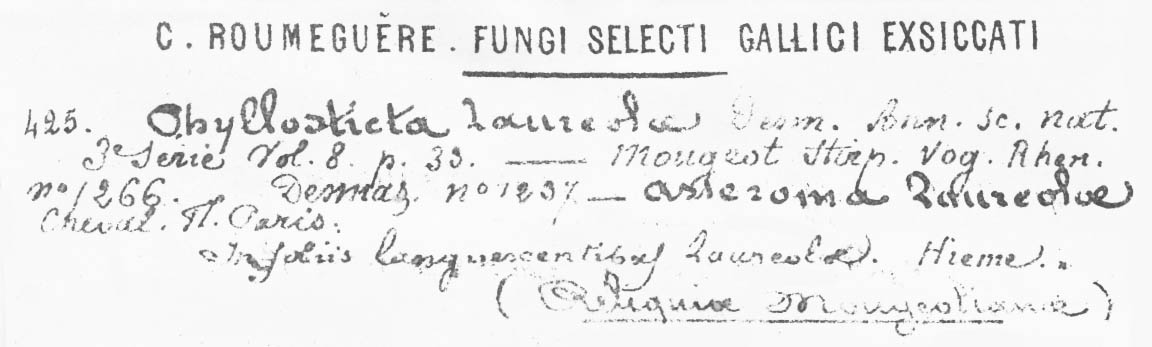 C. ROUMEGUÈRE. FUNGI SELECTI GALLICI EXSICCATI
425. Phyllosticta Laureolæ Desm. Ann. sc. nat.
3e Serie Vol. 8. p. 33. — Mougeot Stirp. Vog. Rhen.
no 1266. Desmaz. no 1237 — Asteroma Laureolæ
Cheval. Fl. Paris.
In foliis languescentibus Laureolæ. Hieme..
(Reliquiæ Mougeotianæ)